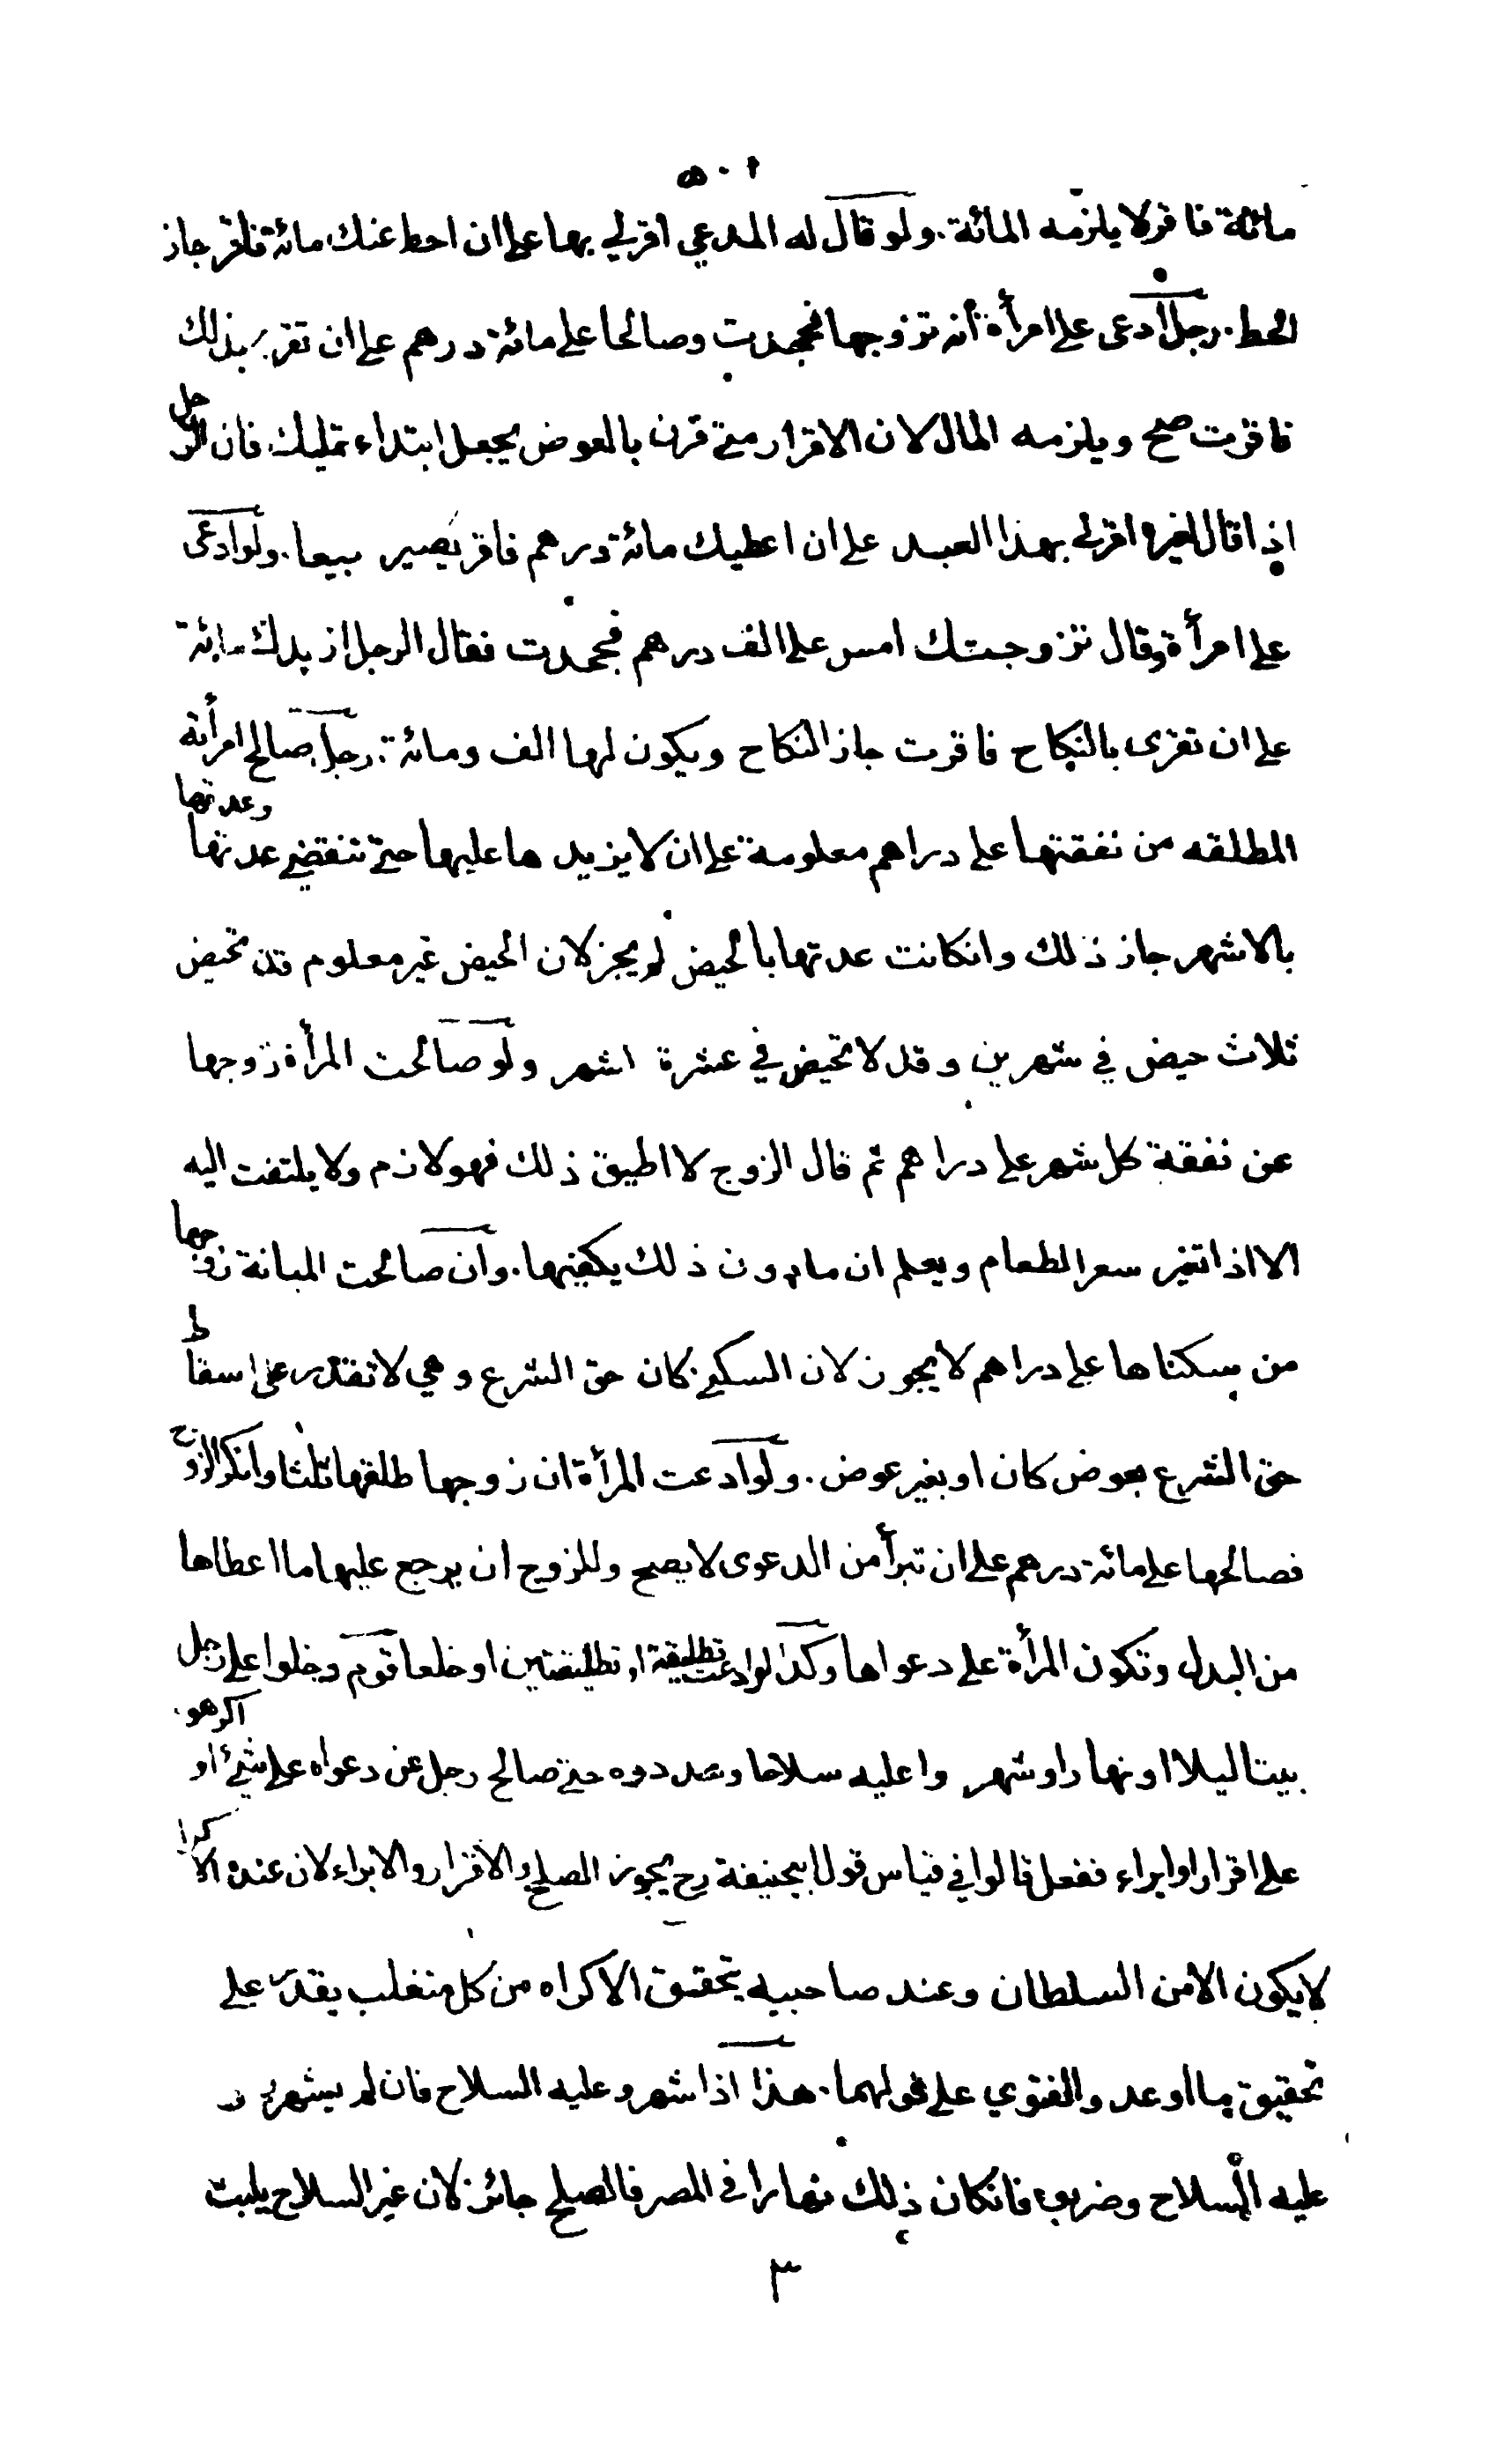 ٥٠١
مائة فاقر لا يلزمه المائة. ولو قال له المدعي اقر لي بها على ان احط عنك مائة فاقر جاز
الحط. رجل ادعى على امرأة أنه تزوجها فجحدت وصالحا على مائة درهم على ان تقر بذلك
فاقرت صح ويلزمه المال لان الاقرار متى قرن بالعوض يجعل ابتداء تمليك فان الرجل
اذا قال لغيره اقر لي بهذا العبد على ان اعطيك مائة درهم فاقر يصير بيعا. ولو ادعى
على امرأة وقال تزوجتك امس على الف درهم فجحدت فقال الرجل ازيدك مائة
على ان تقرى بالنكاح فاقرت جاز النكاح ويكون لها الف ومائة. رجل صالح امرأته
المطلقه من نفقتها على دراهم معلومة على ان لا يزيد ها عليها حتى تنقضي عدتها وعدتها
بالاشهر جاز ذلك وانكانت عدتها بالحيض لم يجز لان الحيض غير معلوم قد تحيض
ثلاث حيض في شهرين وقد لا تحيض في عشرة اشهر ولو صالحت المرأة زوجها
عن نفقة كل شهر على دراهم ثم قال الزوج لا اطيق ذلك فهو لازم ولا يلتفت اليه
الا اذا تغير سعر الطعام ويعلم ان ما دون ذلك يكفيها. وان صالحت المبانة زوجها
من سكناها على دراهم لا يجوز لان السكنى كان حق الشرع وهي لا تقدر على اسقاط
حق الشرع بعوض كان او بغير عوض. ولو ادعت المرأة ان زوجها طلقها ثلثا وانكر الزوج
فصالحها على مائة درهم على ان تبرأ من الدعوى لا يصح وللزوج ان يرجع عليها ما اعطاها
من البدل وتكون المرأة على دعواها وكذا لو ادعت تطليقة او تطليقتين او خلعا قوم دخلوا على رجل
بيتا ليلا او نهارا وشهر وا عليه سلاحا وهددوه حتى صالح رجل عن دعواه على شئ او اكرهو
على اقرار او ابراء ففعل قالوا في قياس قول ابيحنيفة رح يجوز الصلح والاقرار والابراء لان عنده الاكرا
لا يكون الا من السلطان وعند صاحبيه يتحقق الاكراه من كل متغلب يقدر على
تحقيق ما اوعد والفتوي على قولهما. هذا اذا شهر وعليه السلاح فان لم يشهر و
عليه السلاح وضربوه فانكان ذلك نهارا في المصر فالصلح جائز لان غير السلاح يلبث
٣